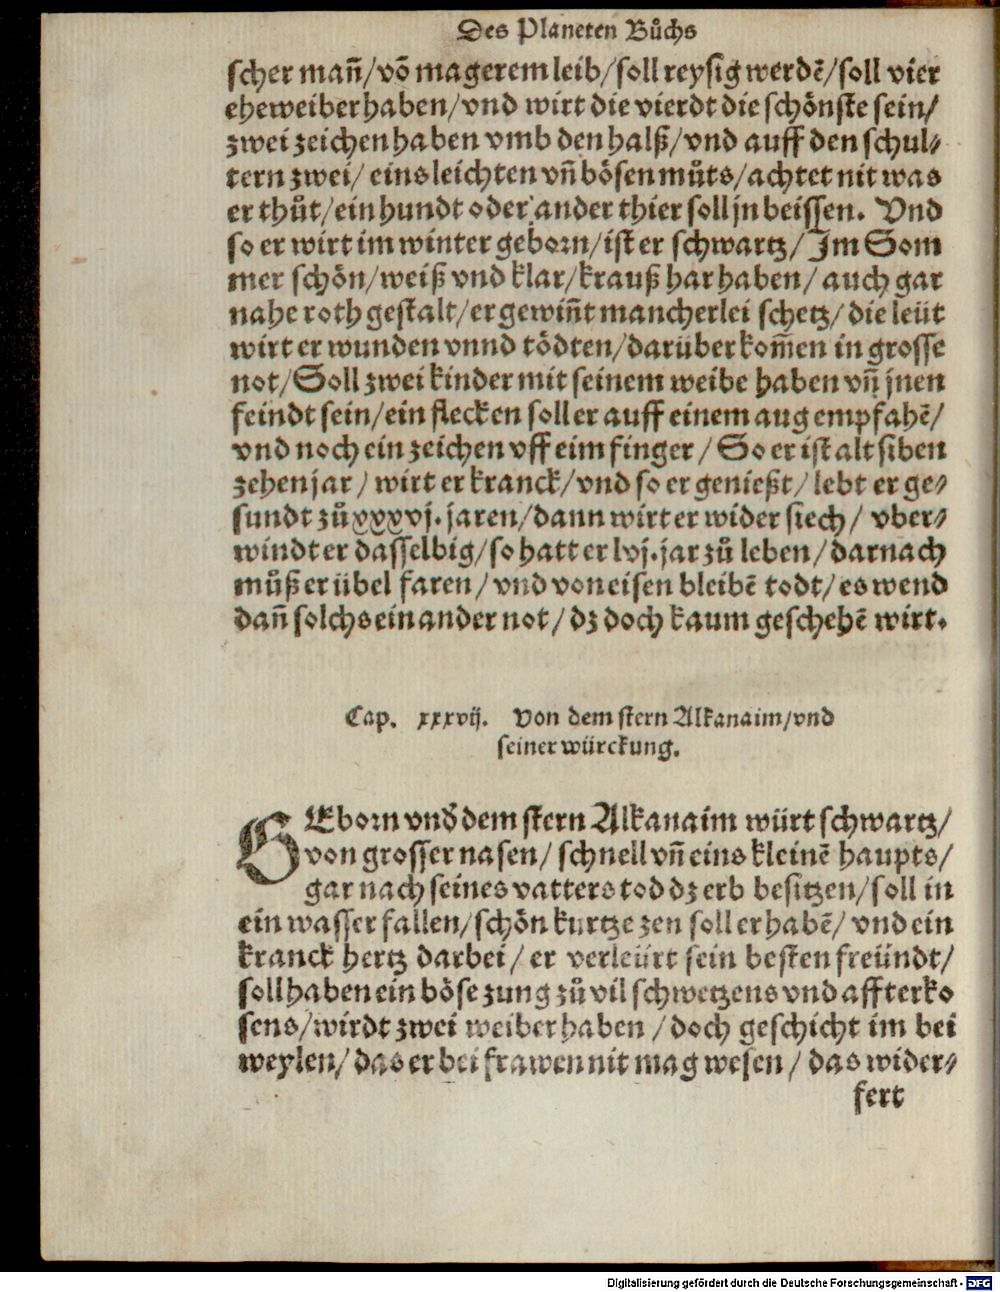 Des Planeten Bůchs
scher mañ/võ magerem leib/soll reysig werdẽ/soll vier
eheweiber haben/vnd wirt die vierdt die schönste sein/
zwei zeichen haben vmb den halß/vnd auff den schul⸗
tern zwei/ eins leichten vñ bösen můts/achtet nit was
er thůt/ein hundt oder ander thier soll jn beissen. Vnd
so er wirt im winter geborn/ist er schwartz/Im Som
mer schön/weiß vnd klar/krauß har haben/auch gar
nahe roth gestalt/er gewiñt mancherlei schetz/die leüt
wirt er wunden vnnd tödten/darüber kom̃en in grosse
not/Soll zwei kinder mit seinem weibe haben vñ jnen
feindt sein/ein flecken soll er auff einem aug empfahẽ/
vnd noch ein zeichen vff eim finger/So er ist alt siben
zehen jar/wirt er kranck/vnd so er genießt/lebt er ge⸗
sundt zů xxxvj. jaren/dann wirt er wider siech/ vber⸗
windt er dasselbig/so hatt er lvj. jar zů leben/darnach
můß er übel faren/vnd von eisen bleibẽ todt/es wend
dañ solchs ein ander not/dz doch kaum geschehẽ wirt.
Cap. xxxvij. Von dem stern Alkanaim/vnd
seiner würckung.
GEborn vnd̕ dem stern Alkanaim würt schwartz/
von grosser nasen/ schnell vñ eins kleinẽ haupts/
gar nach seines vatters tod dz erb besitzen/soll in
ein wasser fallen/schön kurtze zen soll er habẽ/ vnd ein
kranck hertz darbei/er verleürt sein besten freündt/
soll haben ein böse zung zů vil schwetzens vnd affterko
sens/wirdt zwei weiber haben/doch geschicht im bei
weylen/das er bei frawen nit mag wesen/das wider⸗
fert
Digitalisierung gefördert durch die Deutsche Forschungsgemeinschaft - DFG